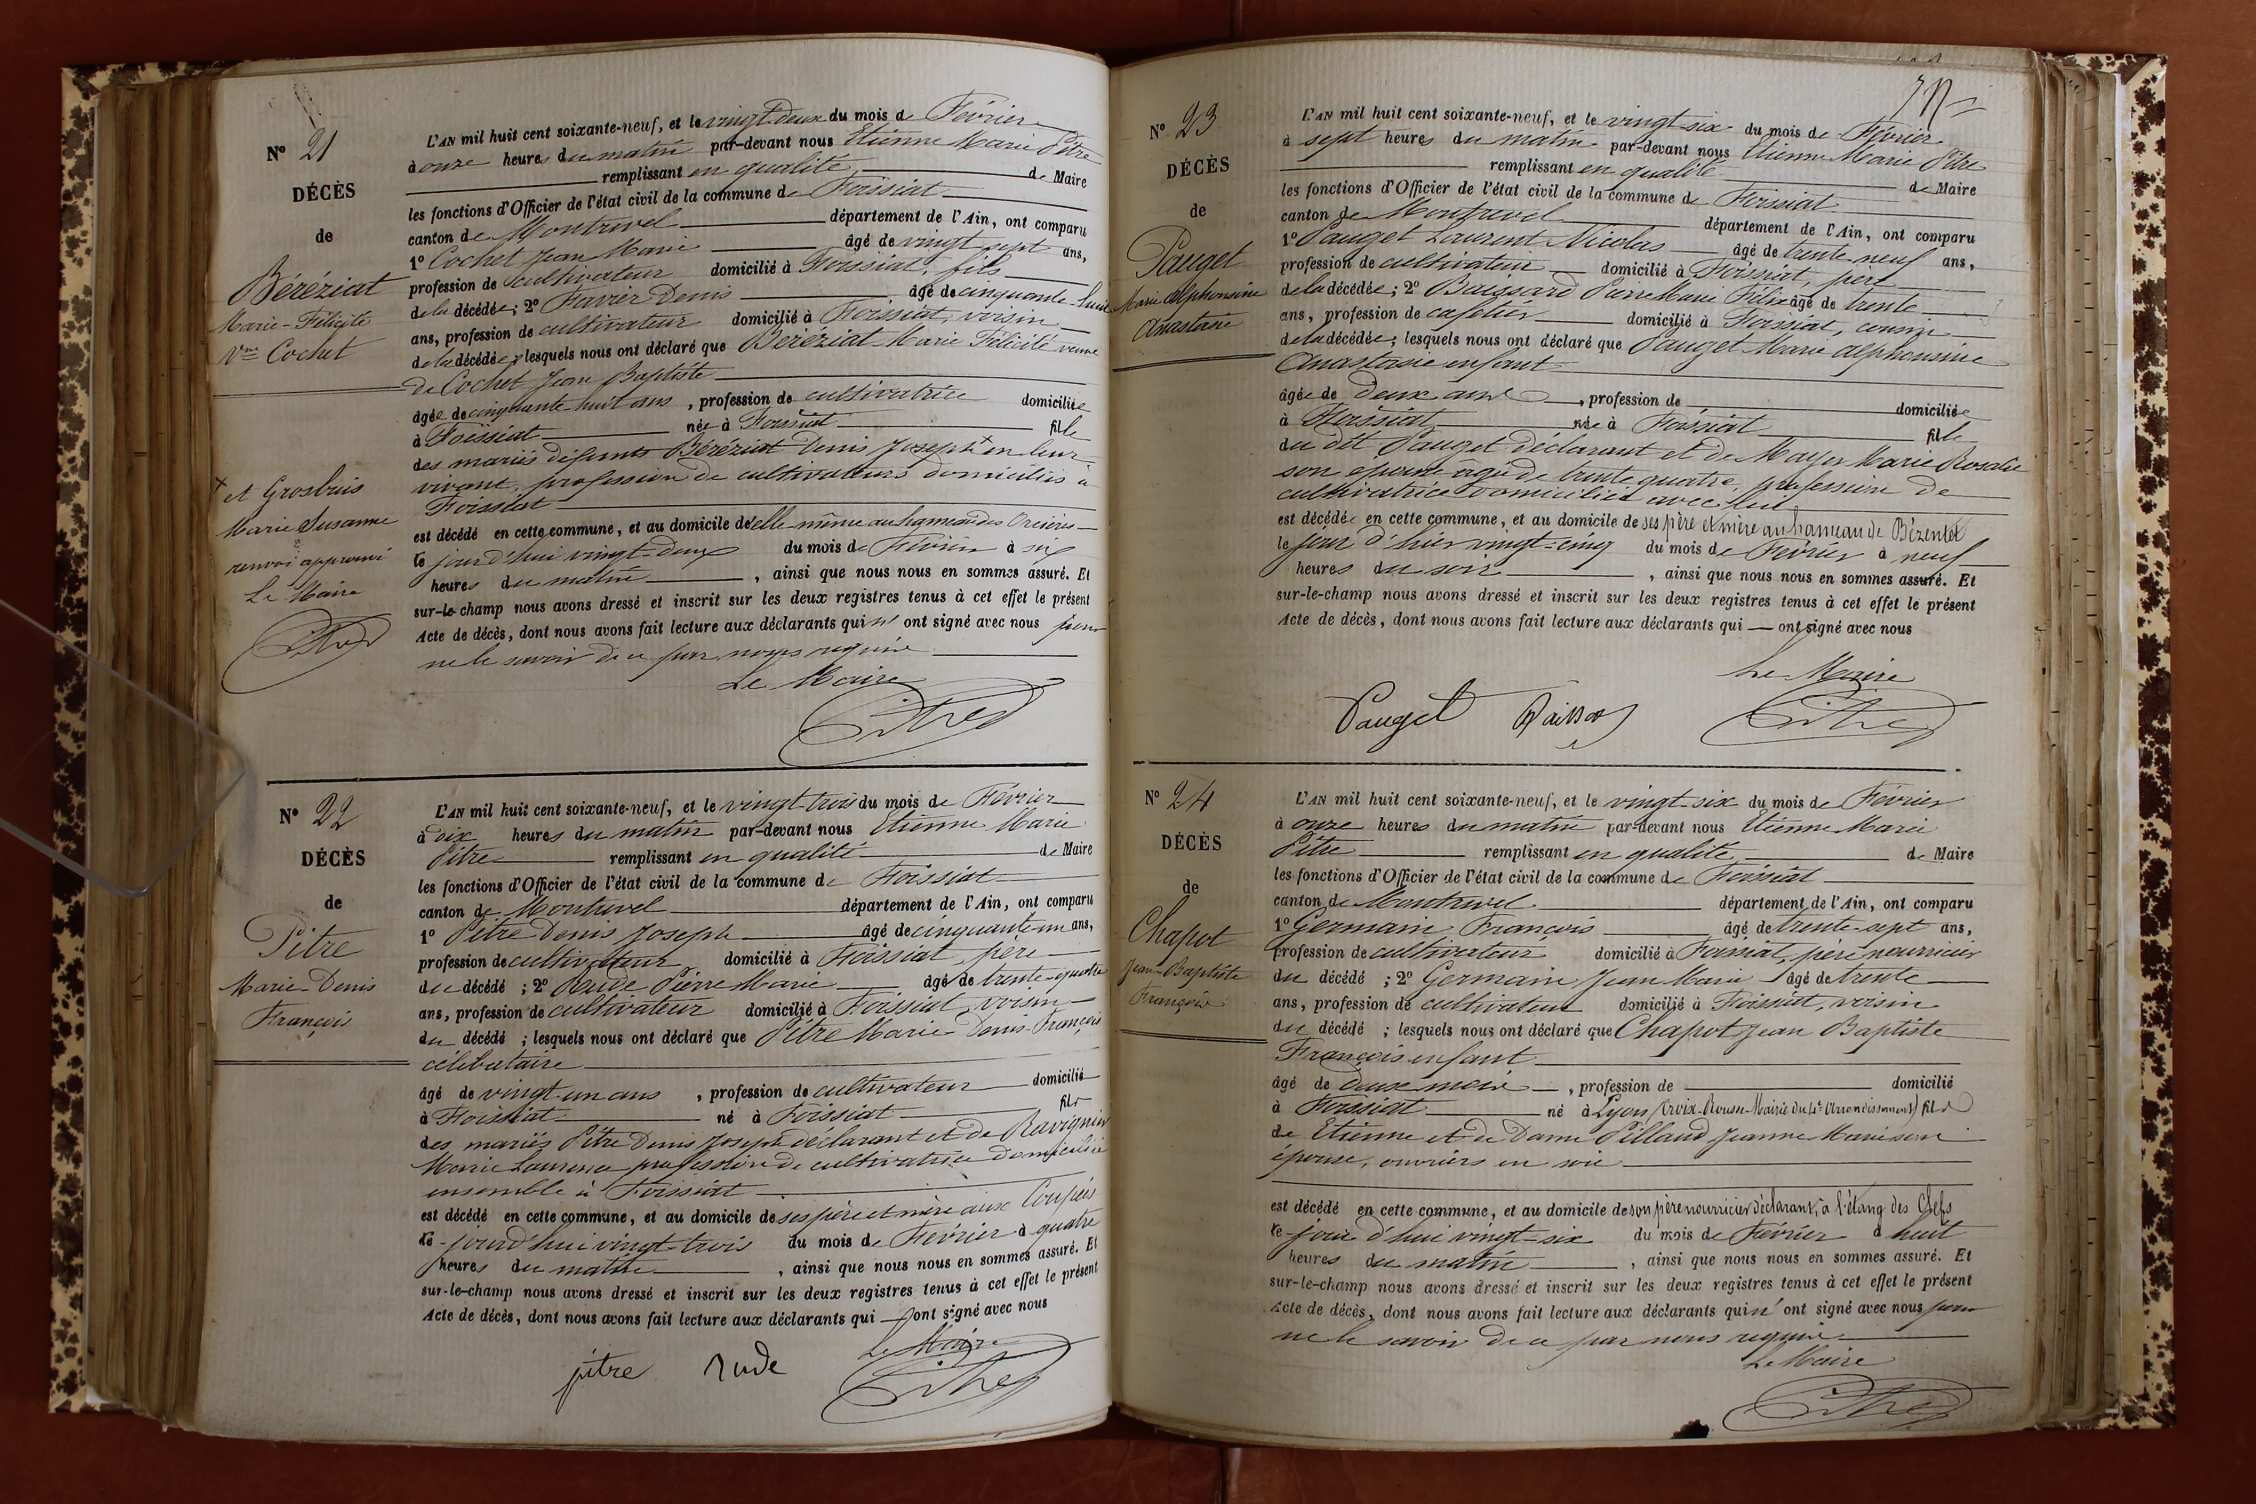 N° 21
DÉCÈS
de
Béréziat
Marie-Félicité
Vve Cochet
L'AN mil huit cent soixante-neuf, et le vingt-deux du mois de Février
à onze heures du matin par-devant nous Etienne Marie Pitre
remplissant en qualité de Maire
les fonctions d'Officier de l'état civil de la commune de Foissiat
canton de Montrevel département de l'Ain, ont comparu
1° Cochet Jean Marie âgé de vingt sept ans,
profession de cultivateur domicilié à Foissiat, fils
de la décédée ; 2° Favier Denis âgé de cinquante-huit
ans, profession de cultivateur domicilié à Foissiat, voisin
de la décédée, lesquels nous ont déclaré que Béréziat Marie Félicité veuve
de Cochet Jean Baptiste
âgée de cinquante-huit ans, profession de cultivatrice domiciliée
à Foissiat née à Foissiat fille
des mariés défunts Béréziat Denis Joseph + en leur
vivant, profession de cultivateurs domiciliés à
Foissiat
est décédé en cette commune, et au domicile de elle-même au hameau des Orcières
le jourd'hui vingt-deux du mois de Février à six
heures du matin, ainsi que nous nous en sommes assuré. Et
sur-le-champ nous avons dressé et inscrit sur les deux registres tenus à cet effet le présent
Acte de décès, dont nous avons fait lecture aux déclarants qui n' ont signé avec nous pour
ne le savoir de ce par nous requis
Le Maire
Pitre
+ et Grosbuis
Marie Susanne
renvoi approuvé
Le Maire
Pitre
N° 22
DÉCÈS
de
Pitre
Marie-Denis
François
L'AN mil huit cent soixante-neuf, et le vingt-trois du mois de Février
à dix heures du matin par-devant nous Etienne Marie
Pitre remplissant en qualité de Maire
les fonctions d'Officier de l'état civil de la commune de Foissiat
canton de Montrevel département de l'Ain, ont comparu
1° Pitre Denis Joseph âgé de cinquante-un ans,
profession de cultivateur domicilié à Foissiat, père
du décédé ; 2° Rude Pierre Marie âgé de trente-quatre
ans, profession de cultivateur domicilié à Foissiat, voisin
du décédé ; lesquels nous ont déclaré que Pitre Marie-Denis-François
célibataire
âgé de vingt-un ans, profession de cultivateur domicilié
à Foissiat né à Foissiat fils
des mariés Pitre Denis Joseph déclarant et de Revignier
Marie Laurence profession de cultivatrice domiciliée
ensemble à Foissiat
est décédé en cette commune, et au domicile de ses père et mère aux Coupées
le jourd'hui vingt-trois du mois de Février à quatre
heures du matin, ainsi que nous nous en sommes assuré. Et
sur-le-champ nous avons dressé et inscrit sur les deux registres tenus à cet effet le présent
Acte de décès, dont nous avons fait lecture aux déclarants qui — ont signé avec nous
Le Maire
pitre rude Pitre
N° 23
DÉCÈS
de
Pauget
Marie Alphonsine
Anastasie
L'AN mil huit cent soixante-neuf, et le vingt-six du mois de Février
à sept heures du matin par-devant nous Etienne Marie Pitre
remplissant en qualité de Maire
les fonctions d'Officier de l'état civil de la commune de Foissiat
canton de Montrevel département de l'Ain, ont comparu
1° Pauget Laurent Nicolas âgé de trente-neuf ans,
profession de cultivateur domicilié à Foissiat, père
de la décédée ; 2° Baissard Pierre Marie Félix âgé de trente
ans, profession de cafetier domicilié à Foissiat, cousin
de la décédée ; lesquels nous ont déclaré que Pauget Marie Alphonsine
Anastasie enfant
âgée de deux ans, profession de domiciliée
à Foissiat née à Foissiat fille
du dit Pauget déclarant et de Mayer Marie Rosalie
son épouse âgée de trente quatre, profession de
cultivatrice domiciliée avec lui
est décédée en cette commune, et au domicile de ses père et mère au hameau de Bézentet
le jour d'hier vingt-cinq du mois de Février à neuf
heures du soir, ainsi que nous nous en sommes assuré. Et
sur-le-champ nous avons dressé et inscrit sur les deux registres tenus à cet effet le présent
Acte de décès, dont nous avons fait lecture aux déclarants qui — ont signé avec nous
Le Maire
Pauget Baissard Pitre
N° 24
DÉCÈS
de
Chapot
Jean-Baptiste
François
L'AN mil huit cent soixante-neuf, et le vingt-six du mois de Février
à onze heures du matin par-devant nous Etienne Marie
Pitre remplissant en qualité de Maire
les fonctions d'Officier de l'état civil de la commune de Foissiat
canton de Montrevel département de l'Ain, ont comparu
1° Germain François âgé de trente-sept ans,
profession de cultivateur domicilié à Foissiat, père nourricier
du décédé ; 2° Germain Jean Marie âgé de trente
ans, profession de cultivateur domicilié à Foissiat, voisin
du décédé ; lesquels nous ont déclaré que Chapot Jean Baptiste
François enfant
âgé de deux mois, profession de domicilié
à Foissiat né à Lyon (Croix-Rousse-Mairie du 4e Arrondissement) fils
de Etienne et de Dame Pilland Jeanne Marie son
épouse, ouvriers en soie
est décédé en cette commune, et au domicile de son père nourricier déclarant, à l'étang des Clefs
le jour d'hui vingt-six du mois de Février à huit
heures du matin, ainsi que nous nous en sommes assuré. Et
sur-le-champ nous avons dressé et inscrit sur les deux registres tenus à cet effet le présent
Acte de décès, dont nous avons fait lecture aux déclarants qui n' ont signé avec nous pour
ne le savoir de ce par nous requis
Le Maire
Pitre